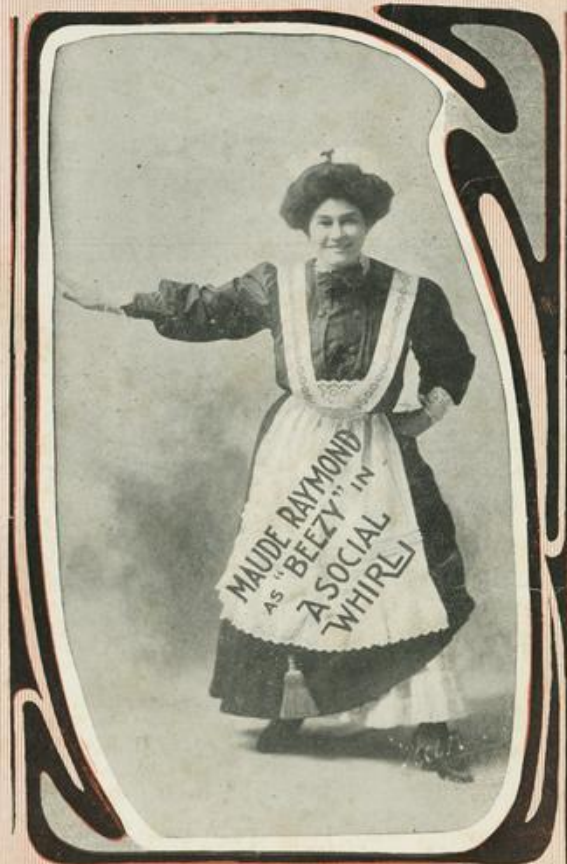 MAUDE RAYMOND
AS "BEEZY" IN
A SOCIAL
WHIRL